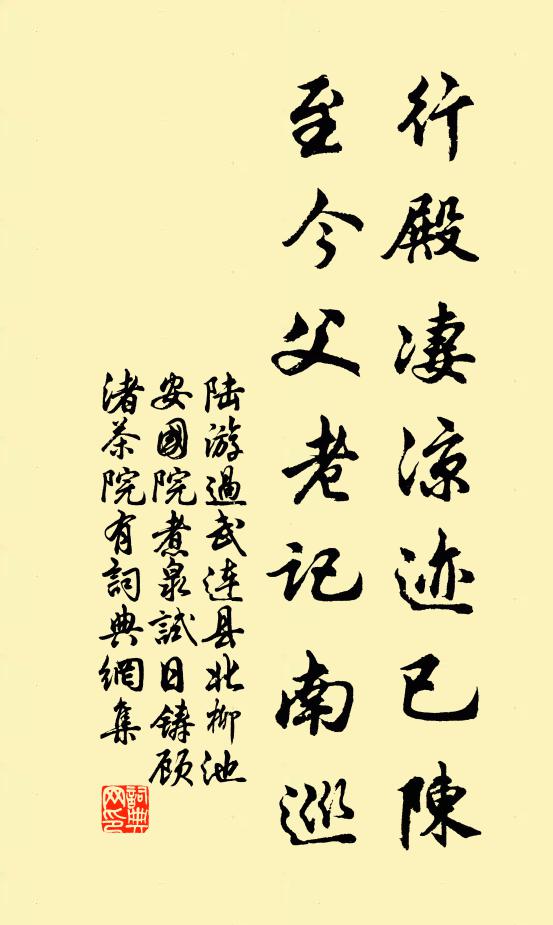 行殿凄凉迹已陳
至今父老記南巡
陆游過武連县北柳池
安國院煮泉試日鑄顾
渚茶院有詞典網集
詞典网印